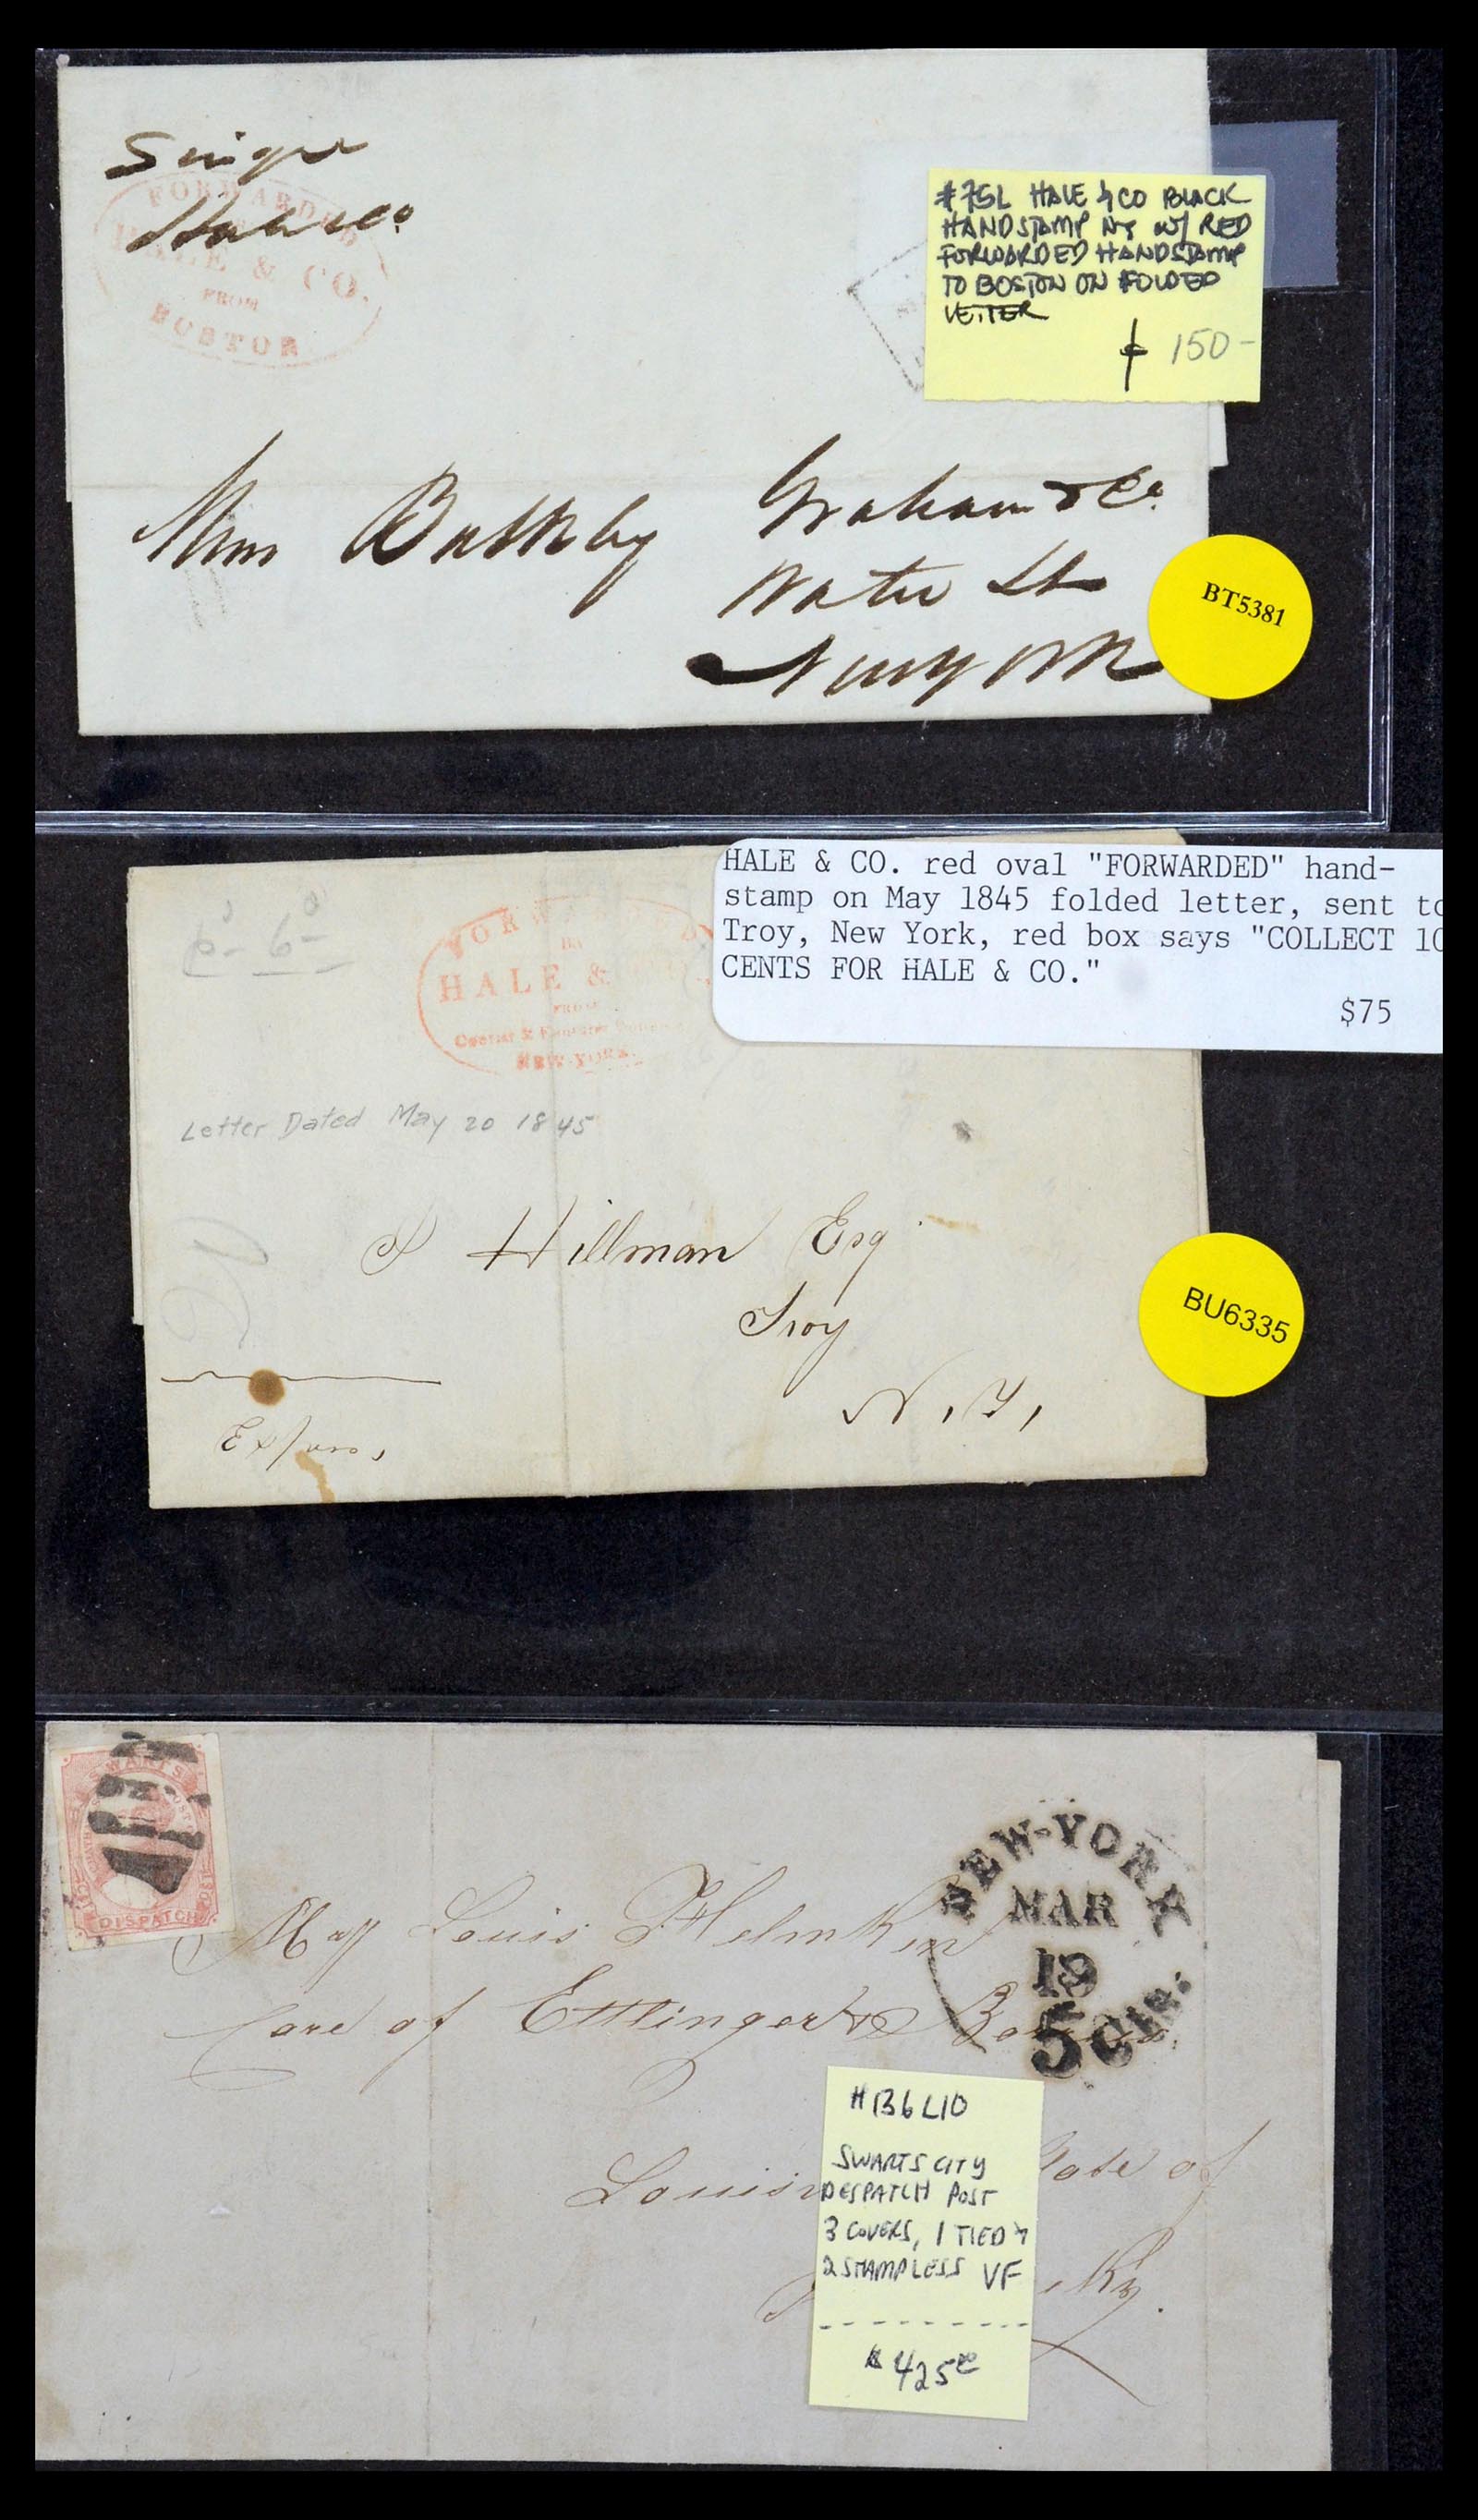 Single
Hale & Co
FORWARDED
HALE & CO.
FROM
BOSTON
#75L HALE & CO BLACK
HANDSTAMP NY W/ RED
FORWARDED HANDSTAMP
TO BOSTON ON FOLDED
LETTER
150-
Graham & Co.
Water St
New York
BT5381
HALE & CO. red oval "FORWARDED" hand-
stamp on May 1845 folded letter, sent to
Troy, New York, red box says "COLLECT 10
CENTS FOR HALE & CO."
$75
BY
HALE &
FROM
NEW-YORK.
Letter Dated May 20 1845
Hillman Esq
Troy
N.Y,
BU6335
SWARTS
DISPATCH
NEW-YORK
MAR
19
5 Cts.
Louis
Care of Ettlinger &
#136L10
SWARTS CITY
DESPATCH POST
3 COVERS, 1 TIED &
2 STAMPLESS VF
$425
State of
Ky.